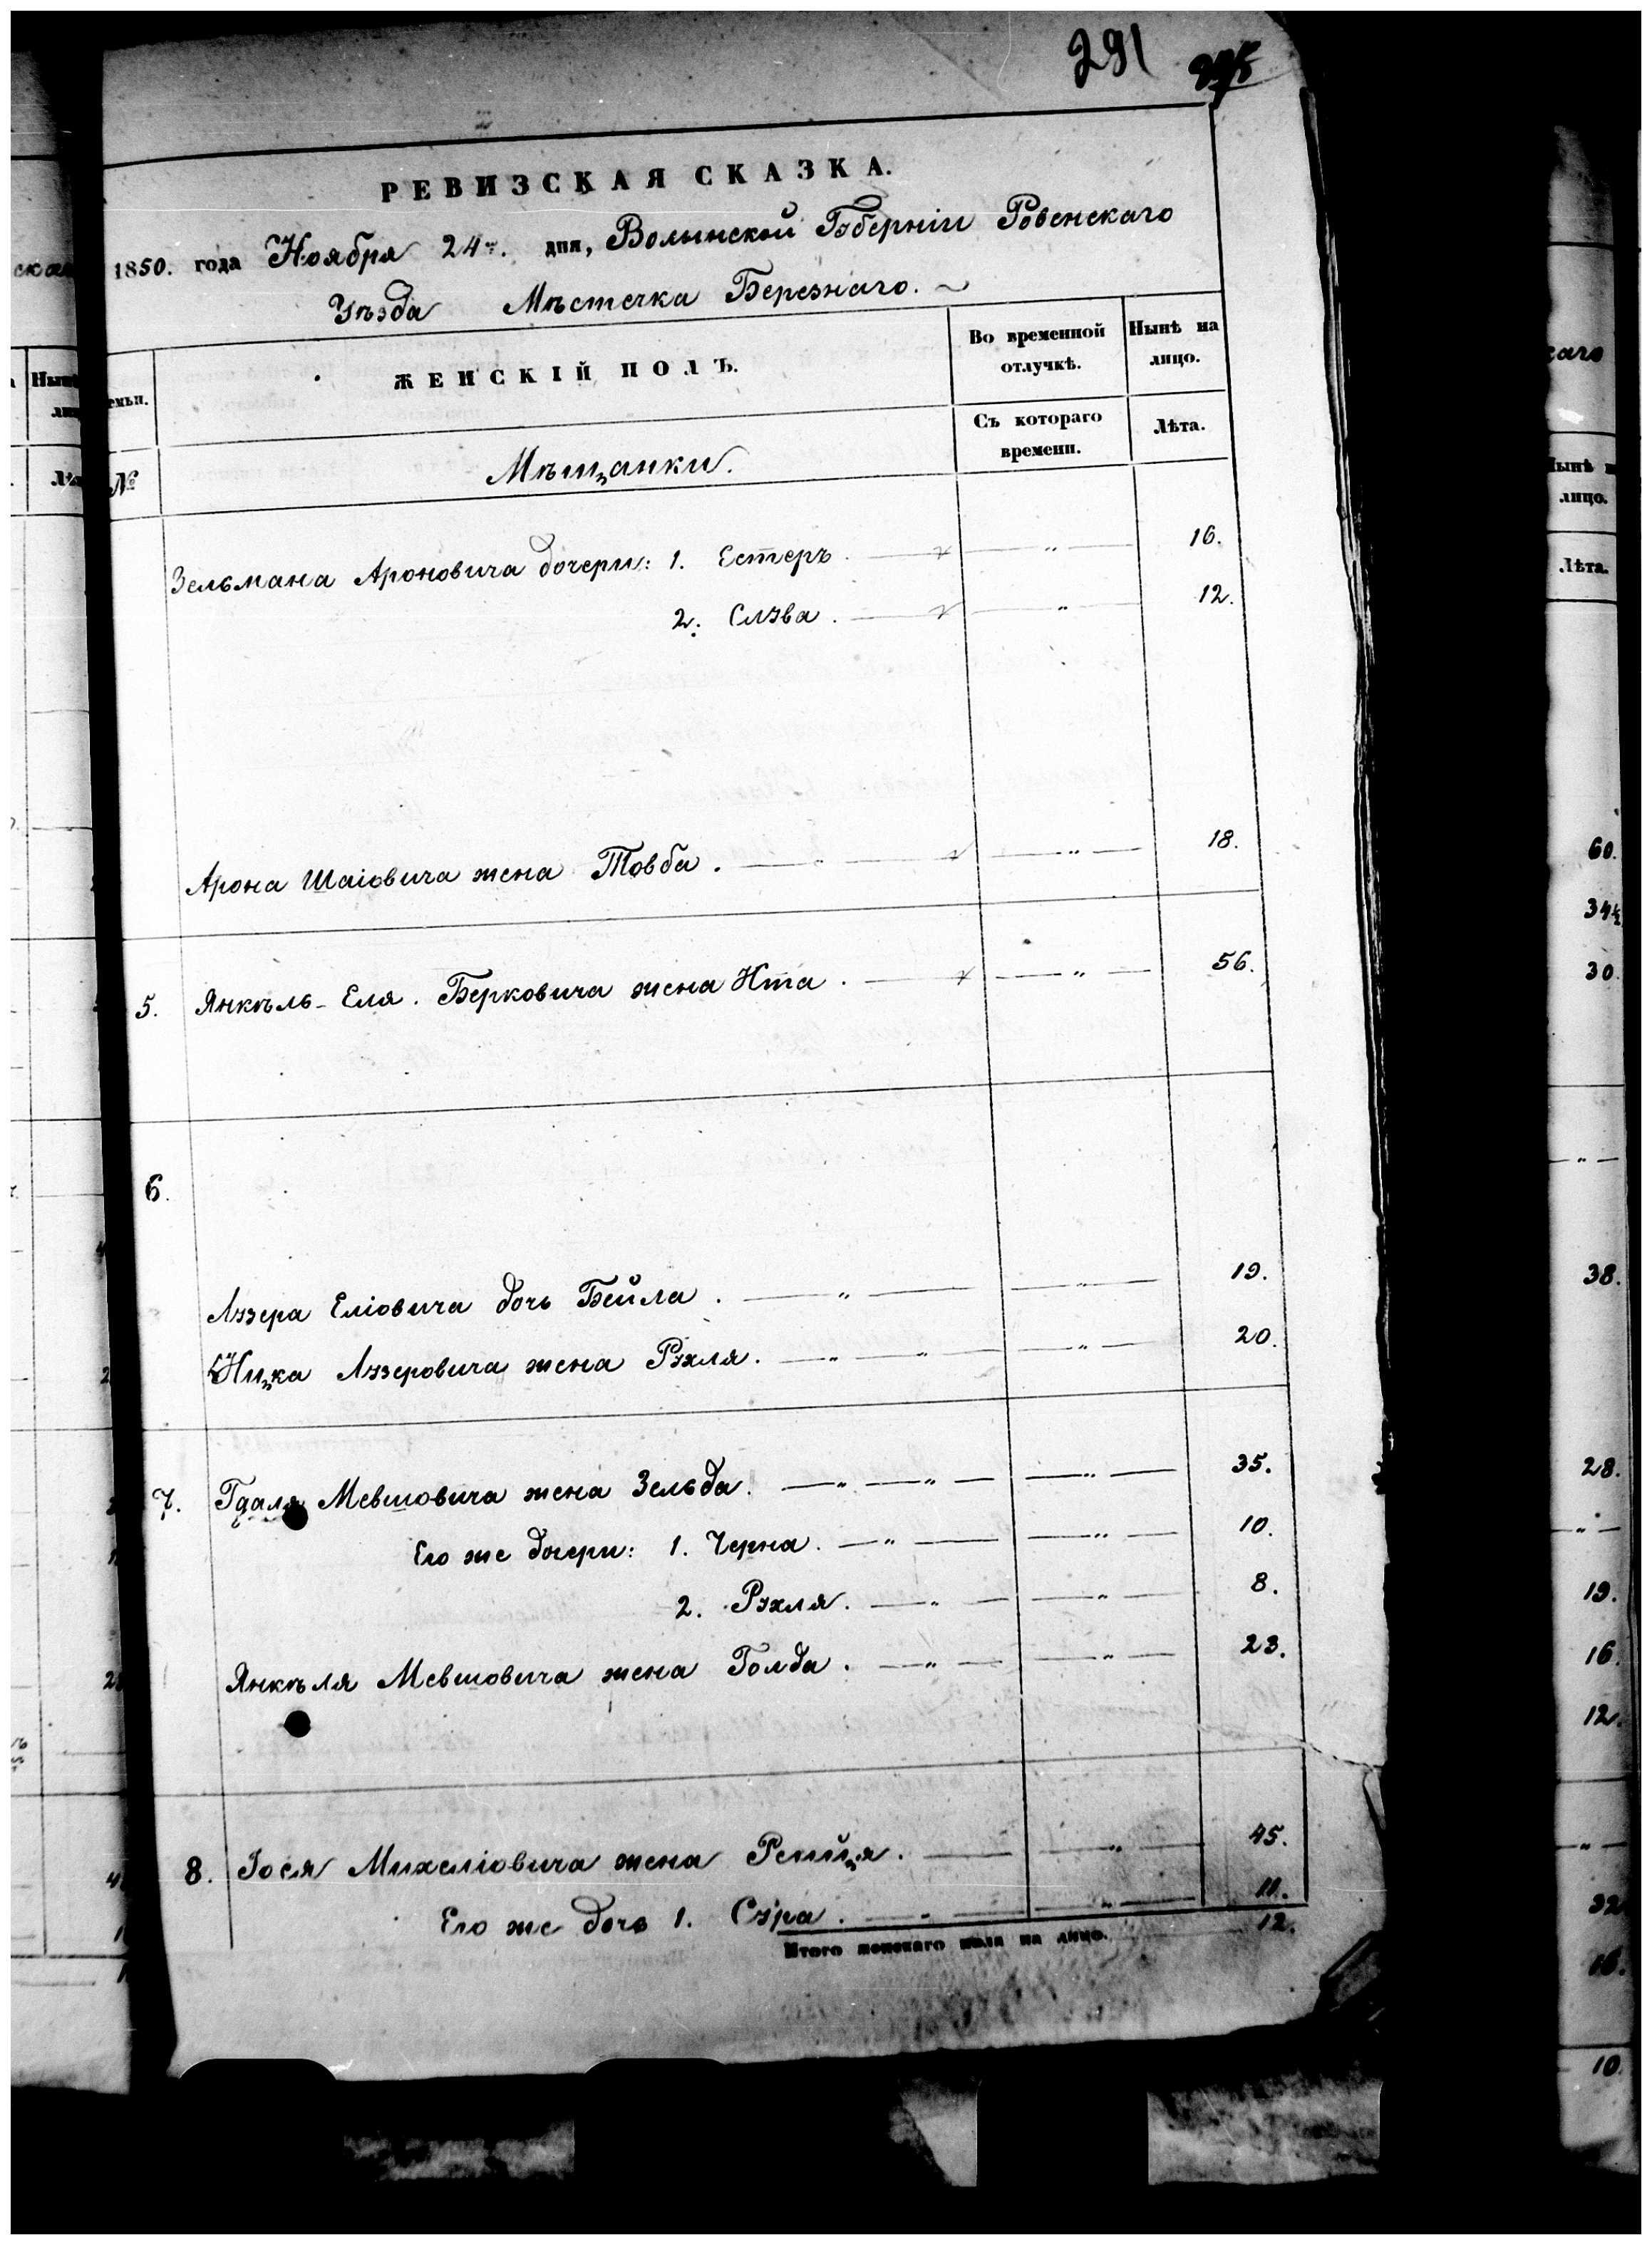 291 295
РЕВИЗСКАЯ СКАЗКА.
1850. года Ноября 24го. дня, Волынской Губерніи Ровенскаго
Уѣзда Мѣстечка Березнаго.
емьи. ЖЕНСКІЙ ПОЛЪ. Во временной отлучкѣ. Нынѣ на лицо.
№ Мѣщанки. Съ котораго времени. Лѣта.
Зельмана Ароновича дочери: 1. Естеръ. — " — 16.
2. Слэва. — " — 12.
Арона Шаіовича жена Товба. — " — " — 18.
5. Янкѣль-Еля. Берковича жена Ита. — " — 56.
6.
Лэзера Еліовича дочь Бейла. — " — " — 19.
Ицка Лэзеровича жена Рэхля. — " — " — " — 20.
7. Гдаля Мевшовича жена Зельда. — " — " — " — 35.
Его же дочери: 1. Черна. — " — " — 10.
2. Рэхля. — " — " — 8.
Янкѣля Мевшовича жена Голда. — " — " — 23.
8. Іося Михеліовича жена Рейця. — " — 45.
Его же дочь 1. Сэра. — " — " — 11.
Итого женскаго пола на лицо. 12.
Нынѣ на
лицо.
Лѣта.
60.
34½
30.
— " —
38.
28.
— " —
19.
16.
12.
— " —
32
16.
10.